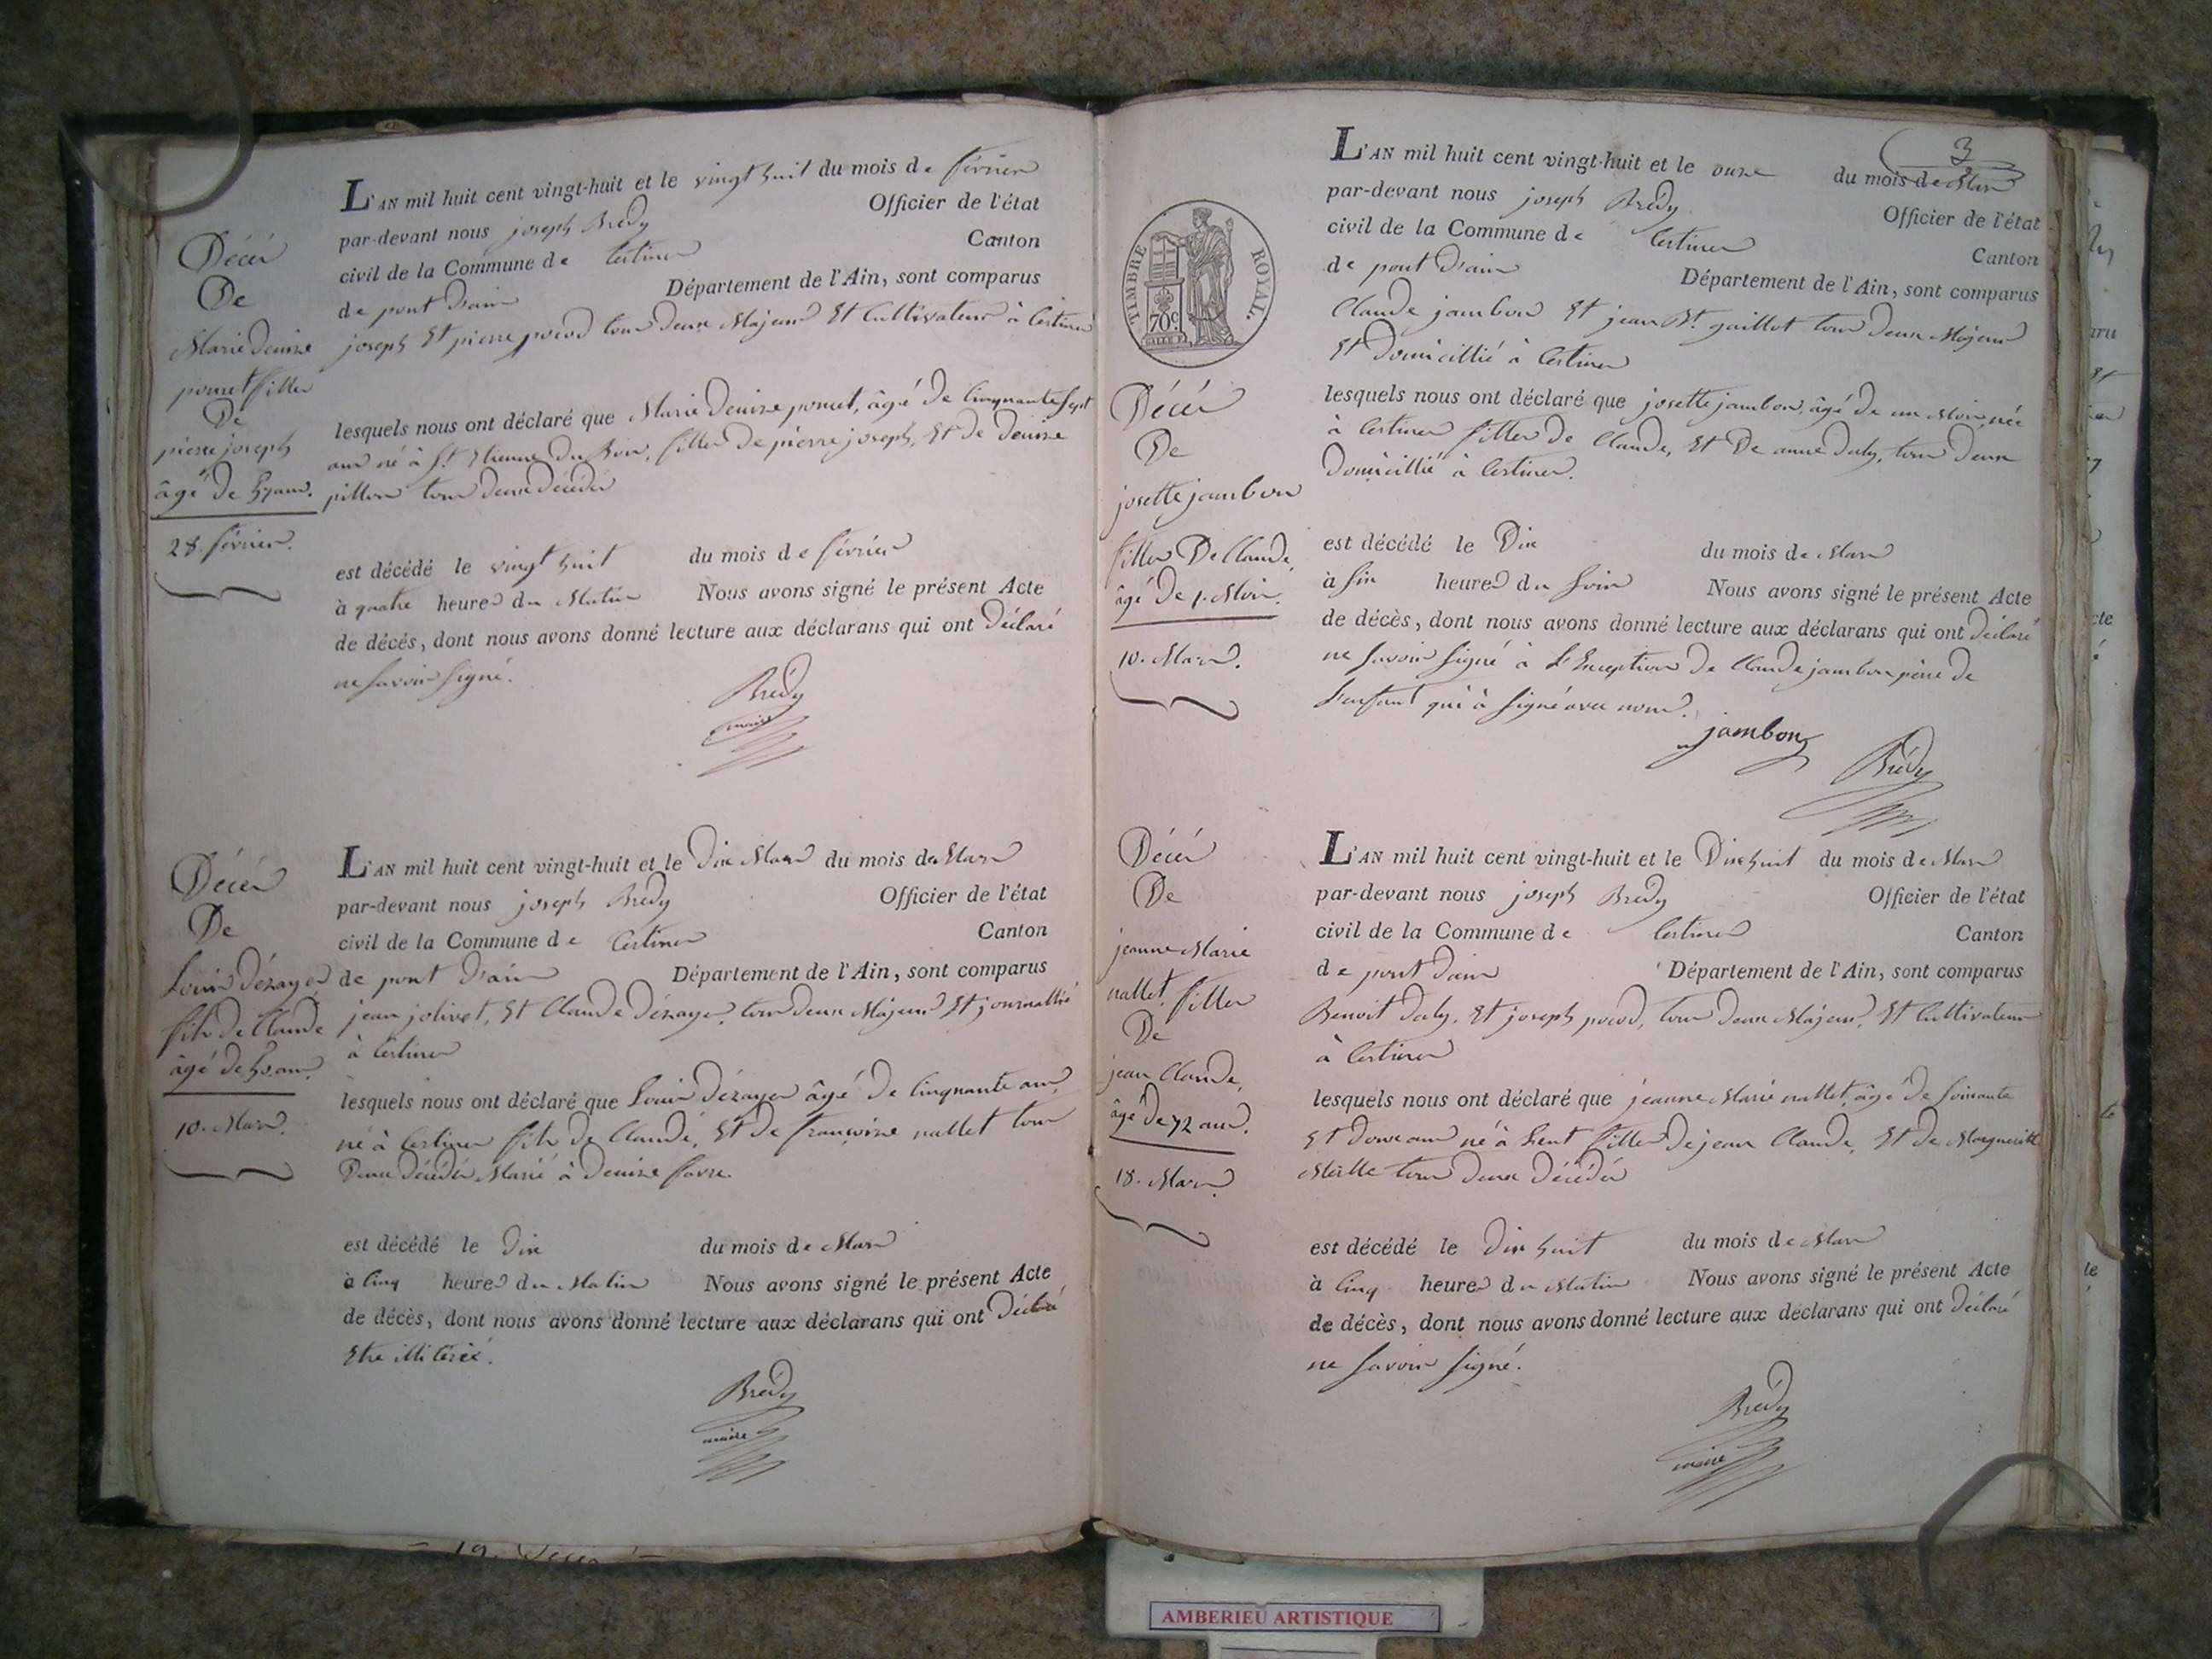 L'AN mil huit cent vingt-huit et le vingt huit du mois de février
par-devant nous joseph Bredy Officier de l'état
civil de la Commune de Certines Canton
de pont d'ain Département de l'Ain, sont comparus
joseph Et pierre tous deux Majeurs Et Cultivateurs à Certines
lesquels nous ont déclaré que Marie Denise poncet, âgé de Cinquante Sept
ans né à St Etienne du Bois, fille de pierre joseph, Et de Denise
pillon tous deux décédés
est décédé le vingt huit du mois de février
à quatre heures du Matin Nous avons signé le présent Acte
de décès, dont nous avons donné lecture aux déclarans qui ont Déclaré
ne Savoir Signé.
Bredy
maire
Décès
De
Marie Denise
poncet fille
De
pierre joseph
âgé de 57 ans.
28. février.
L'AN mil huit cent vingt-huit et le Dix Mars du mois de Mars
par-devant nous joseph Bredy Officier de l'état
civil de la Commune de Certines Canton
de pont d'ain Département de l'Ain, sont comparus
jean jolivet, Et Claude Dézayes, tous deux Majeurs Et journallié
à Certines
lesquels nous ont déclaré que Louis Dézayes âgé de Cinquante ans,
né à Certines fils de Claude, Et de françoise nallet tous
Deux décédés Marié à Denise favre.
est décédé le Dix du mois de Mars
à Cinq heures du Matin Nous avons signé le présent Acte
de décès, dont nous avons donné lecture aux déclarans qui ont Déclaré
Etre illitéré.
Bredy
maire
Décès
De
Louis Dézayes
fils de Claude
âgé de 50 ans.
10. Mars.
3
L'AN mil huit cent vingt-huit et le onze du mois de Mars
par-devant nous joseph Bredy Officier de l'état
civil de la Commune de Certines Canton
de pont d'ain Département de l'Ain, sont comparus
Claude jambon Et jean Bt. gaillot tous Deux Majeurs
Et Domicillié à Certines
lesquels nous ont déclaré que josette jambon, âgé de un Mois, née
à Certines fille de Claude, Et De anne Daly, tous Deux
Domicillié à Certines.
est décédé le Dix du mois de Mars
à Six heures du Soir Nous avons signé le présent Acte
de décès, dont nous avons donné lecture aux déclarans qui ont Déclaré
ne Savoir Signé à L'Exception de Claude jambon père de
L'enfant qui à Signé avec nous.
jambon
Bredy
TIMBRE ROYAL.
70c
Décès
De
josette jambon
fille De Claude,
âgé De 1. Mois.
10. Mars.
L'AN mil huit cent vingt-huit et le Dix huit du mois de Mars
par-devant nous joseph Bredy Officier de l'état
civil de la Commune de Certines Canton
de pont d'ain Département de l'Ain, sont comparus
Benoit Daly, Et joseph tous deux Majeurs, Et Cultivateurs
à Certines
lesquels nous ont déclaré que jeanne Marie nallet, âgé de Soixante
Et Douze ans né à Lent fille De jean Claude, Et de Marguerite
tous Deux Décédés
est décédé le Dix huit du mois de Mars
à Cinq heures du Matin Nous avons signé le présent Acte
de décès, dont nous avons donné lecture aux déclarans qui ont Déclaré
ne Savoir Signé.
Bredy
maire
Décès
De
jeanne Marie
nallet, fille
De
jean Claude,
âgé de 72 ans.
18. Mars.
AMBERIEU ARTISTIQUE